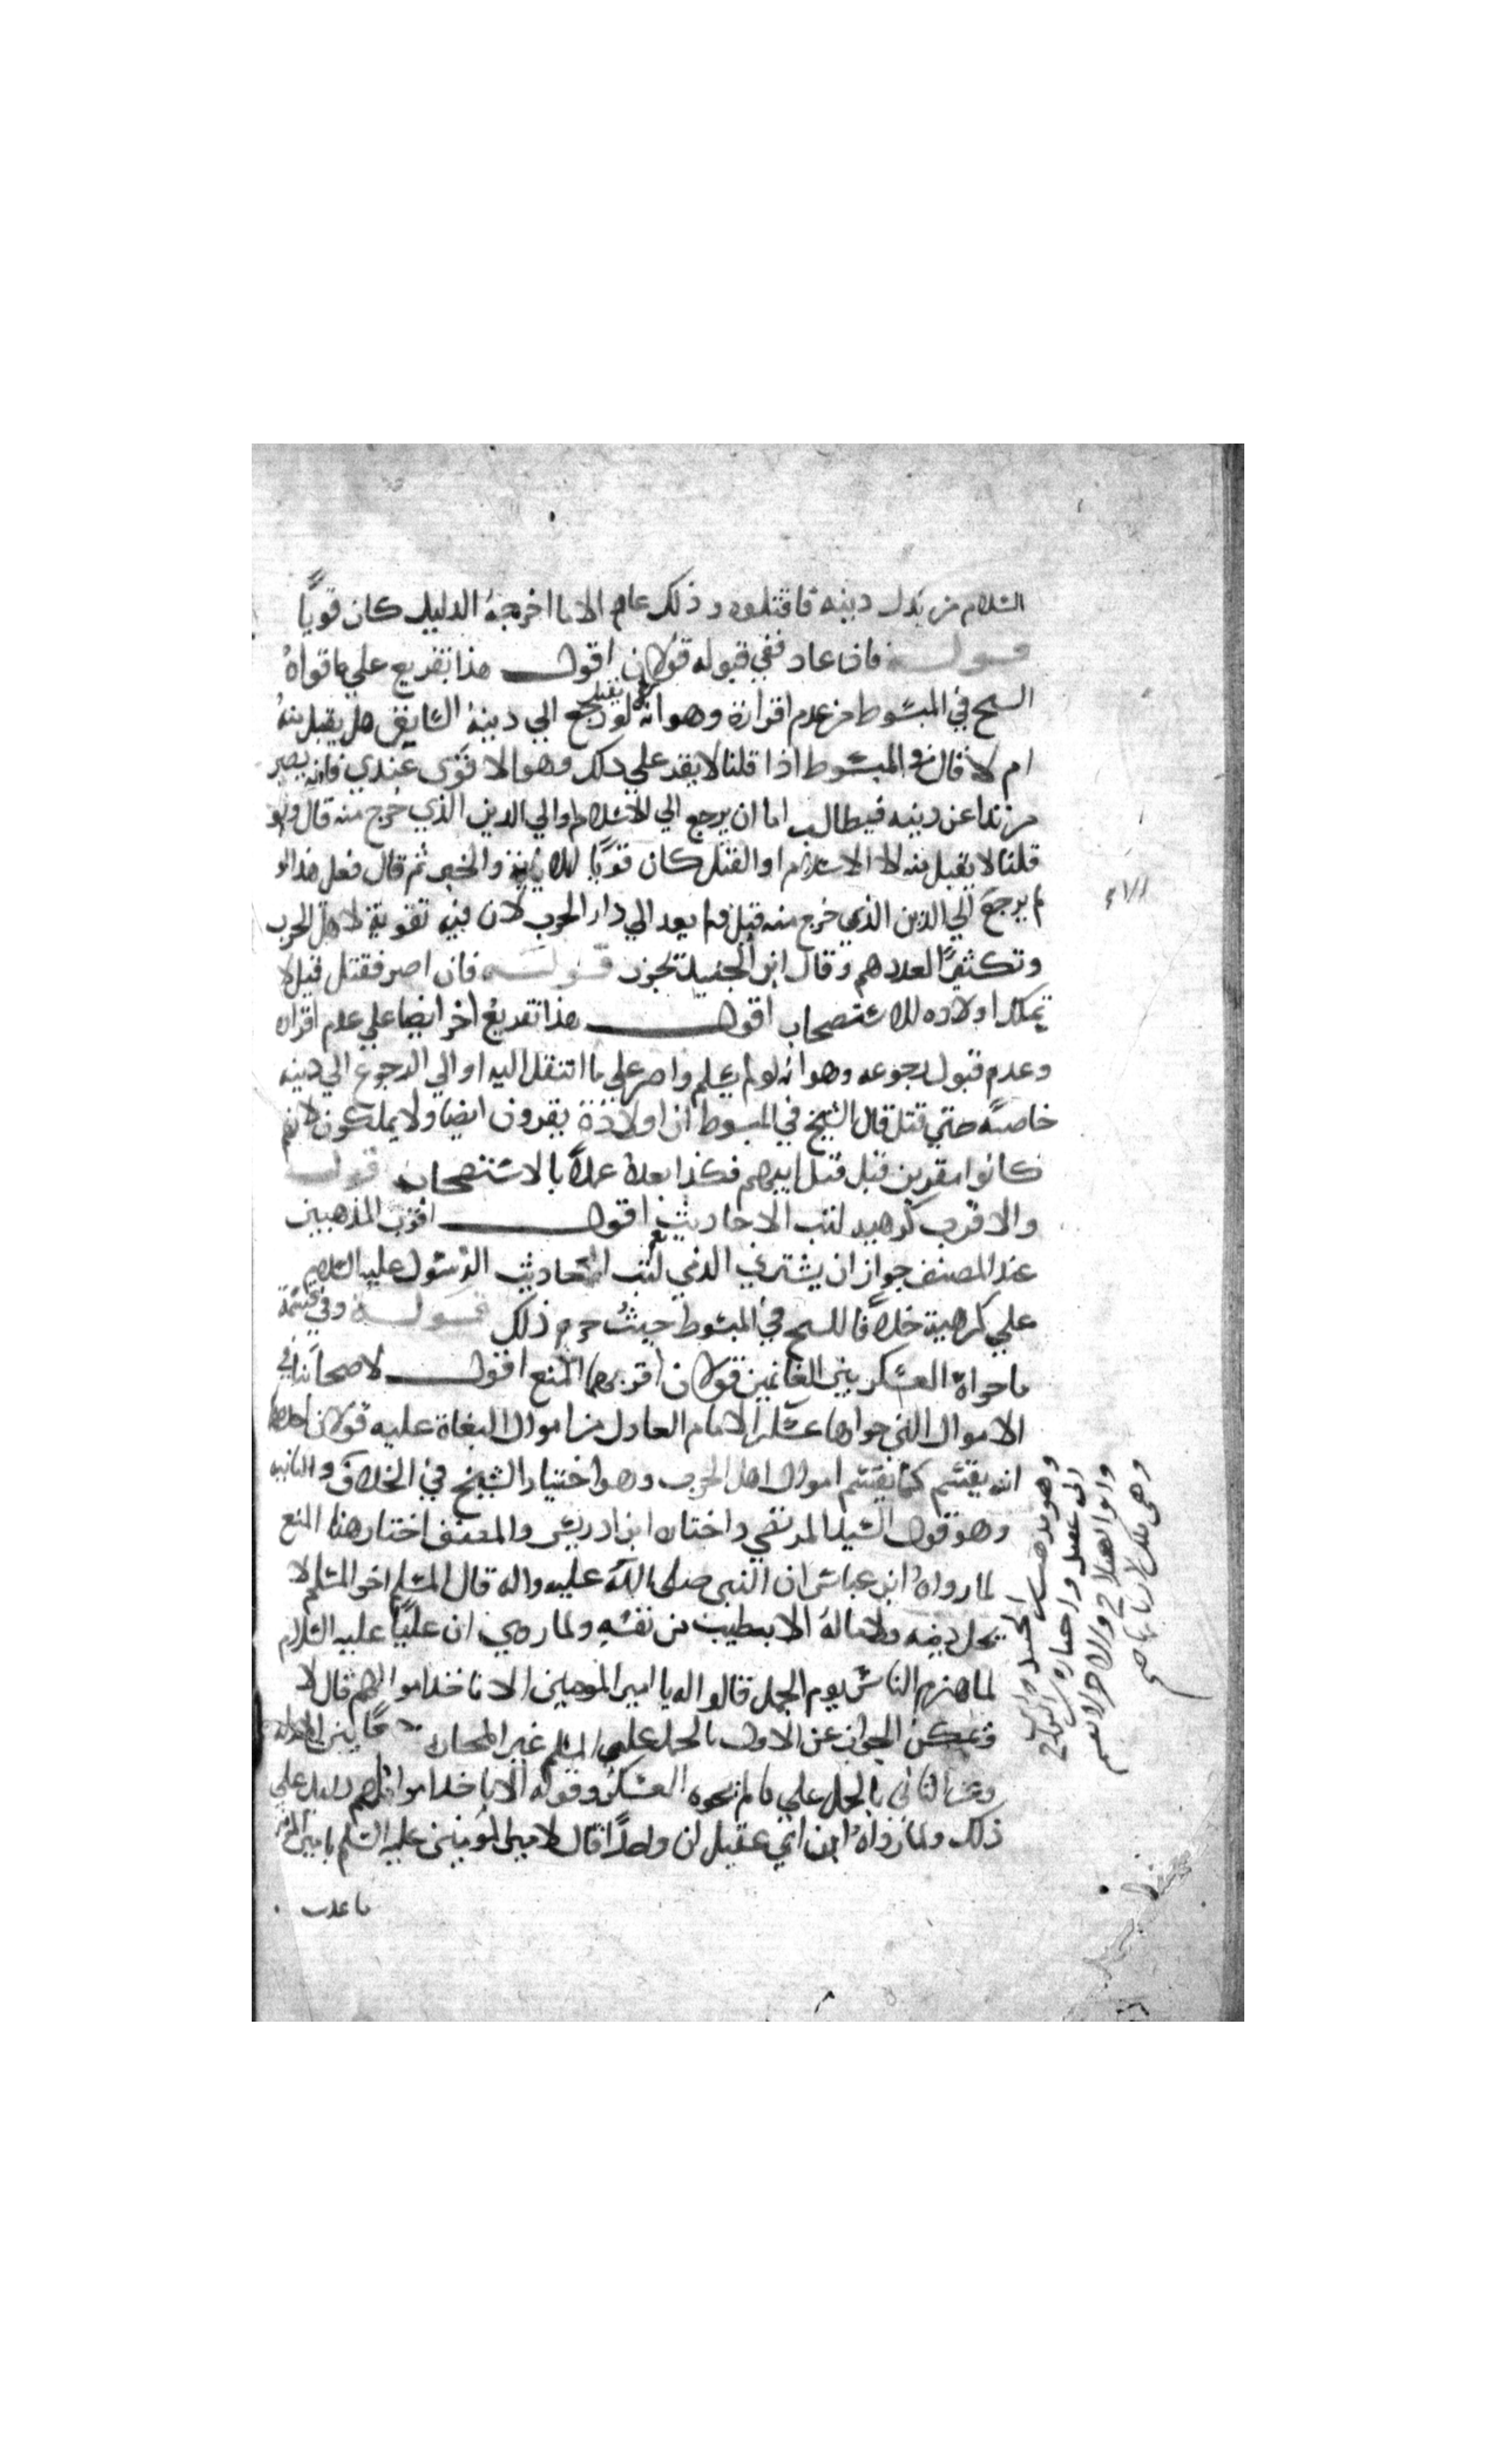 السلام من بدل دينه فاقتلوه وذلك عام الا ما اخرجه الدليل كان قوياً
قوله فان عاد ففي قبوله قولان اقول هذا تفريع علي ما قواهُ
الشيخ في المبسوط من عدم اقراره وهو انه لو رجع الي دينه السابق هل يقبل منه
ام لا قال في المبسوط اذا قلنا لا يقر علي ذلك وهو الاقوى عندي فانه يصير
مرتدا عن دينه فيطالب اما ان يرجع الي الاسلام او الي الدين الذي خرج منه قال ولو
قلنا لا يقبل منه الا الاسلام او القتل كان قويًا للاية والخبر ثم قال فعلي هذا لو
لم يرجع الي الدين الذي خرج منه قتل ولم يعد الي دار الحرب لان فيه تقوية لاهل الحرب
وتكثيرًا لعددهم وقال ابن الجنيد يجوز قوله فان اصر فقتل قيل لا
تملك اولاده للاستصحاب اقول هذا تفريع اخر ايضا علي عدم اقراره
وعدم قبول رجوعه وهو انه لو لم يسلم واصر علي ما انتقل اليه او الي الرجوع الي دينه
خاصة حتي قتل قال الشيخ في المبسوط ان اولاده يقرون ايضا ولا يملكون لانهم
كانوا مقرين قبل قتل ابيهم فكذا بعده عملاً بالاستصحاب قوله
والاقرب كراهية كتب الاحاديث اقول اقرب المذهبين
عند المصنف جواز ان يشتري الذمي كتب احاديث الرسول عليه السلام
علي كراهية خلافا للشيخ في المبسوط حيث حرم ذلك قوله وفي قسمة
ما حواه العسكر بين الغانمين قولان اقربهما المنع اقول لاصحابنا في
الاموال التي حواها عسكر الامام العادل من اموال البغاة عليه قولان احدهما
انه يقسم كما يقسم اموال اهل الحرب وهو اختيار الشيخ في الخلاف والثانيه
وهو قول السيد المرتضي واختاره ابن ادريس والمصنف اختار هنا المنع
لما رواه ابن عباس ان النبي صلى الله عليه واله قال المسلم اخو المسلم لا
يحل دمه ولا ماله الا بطيب من نفسه ولما روي ان علياً عليه السلام
لما هزم الناس يوم الجمل قالوا له يا امير المومنين الا تاخذ اموالهم قال لا
ويمكن الجواب عن الاول بالحمل علي المسلم غير المحارب
وعن الثاني بالحمل علي ما لم يحوه العسكر وقوله الا تاخذ اموالهم دليل علي
ذلك ولما رواه ابن ابي عقيل ان واحدًا قال لامير المومنين عليه السلم يا امير المومنين
ما عدلت
وهو مذهب ابن الجنيد وابن
ابي عقيل واختاره